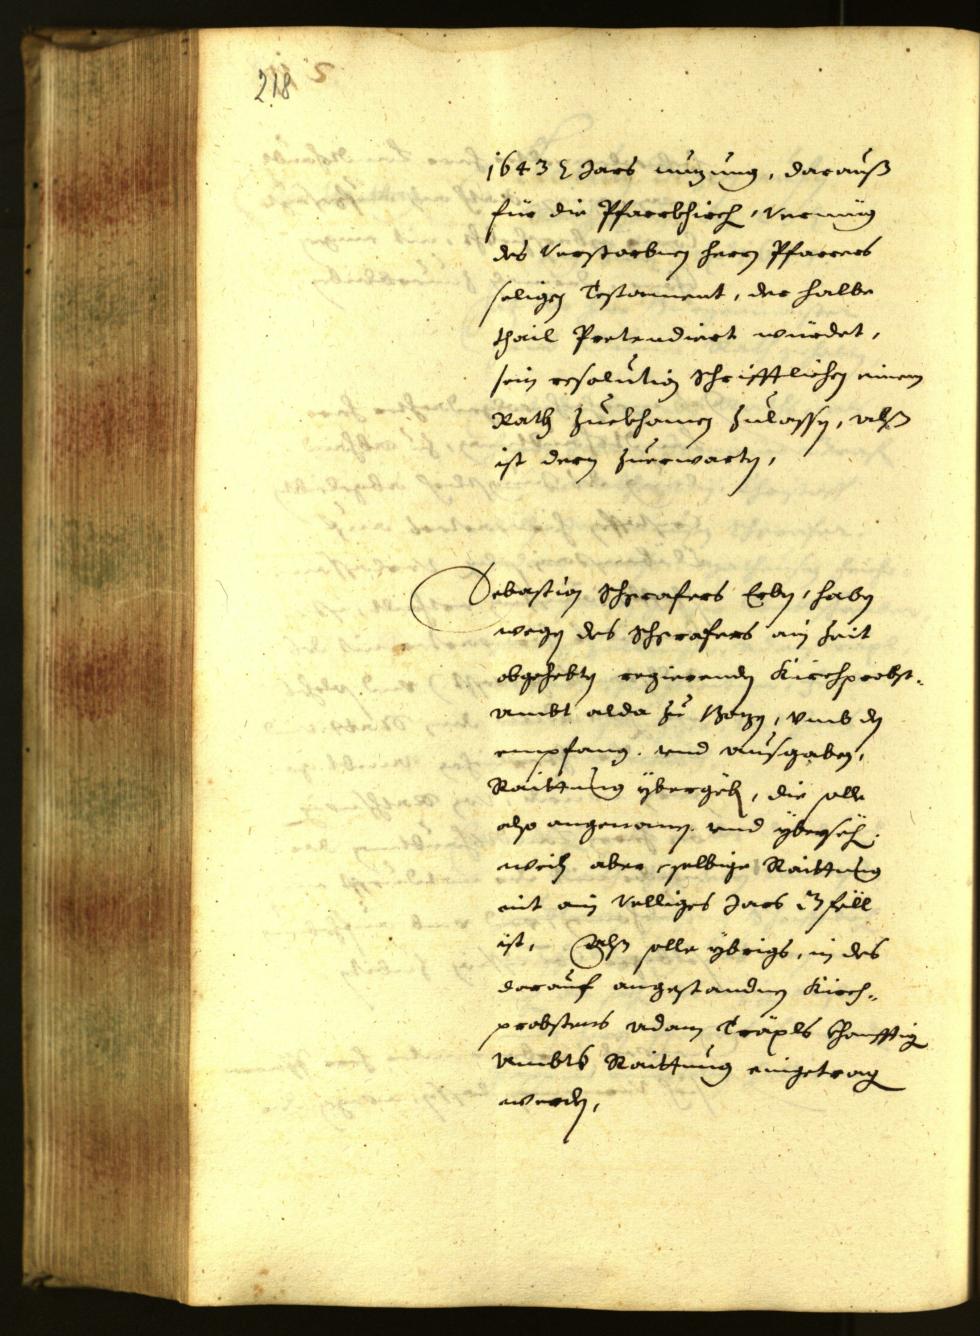 218
1643 Jars nuzung, darauß
für die Pfarrkhirch, vermüg
des verstorbnen herrn Pfarrers
seligen Testament, der halbe
thail Pretendiert würdet,
sein resolution Schrifftlichen einem
Rath zuekhamen zulassen, alß
ist dern zuerwarten,
Sebastion Schgrafers Erben, haben
wegen des Schgrafers ain zeit
obgehebten regierenden Kirchprobst-
ambt alda zu Bozen, vmb den
empfang. vnd ausgaben,
Raittung ybergeben, die solle
also angenomen. vnd ybersehen.
weil aber selbige Raittung
nit ain velliges Jars
ist, Alß solle ybrigs, in des
darauf angestandnen Kirch-
probstens adam Träpls khonfftig
ambts Raittung eingetragen
werden,